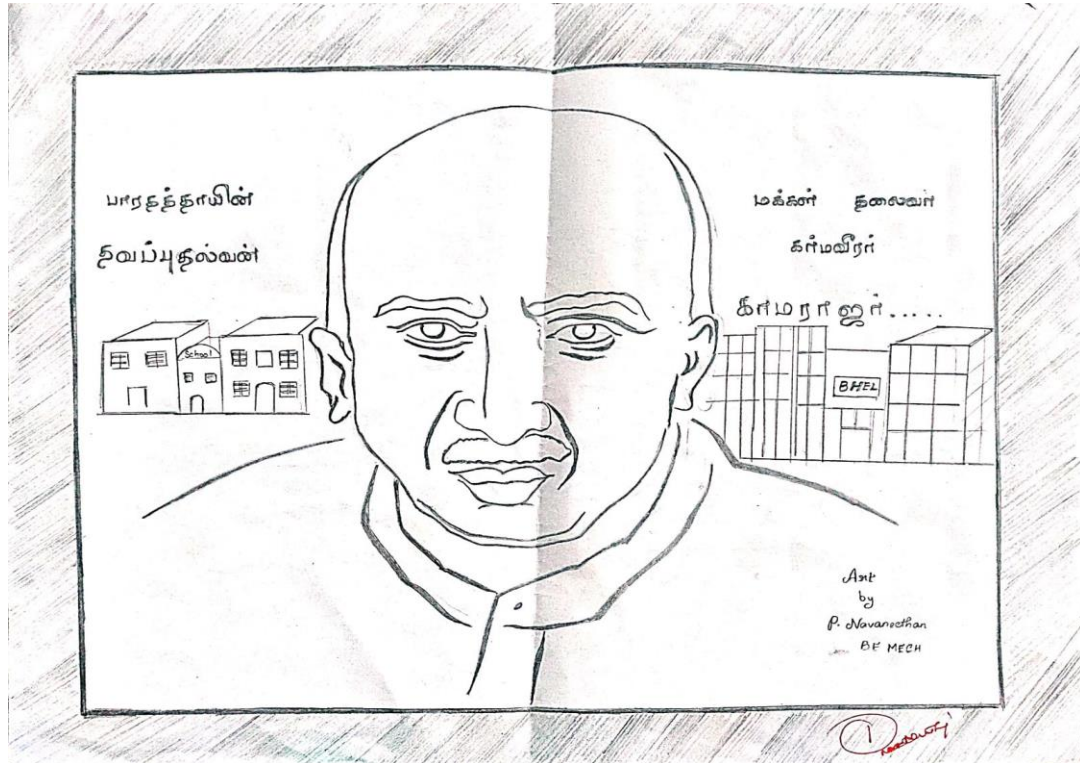 பாரதத்தாயின்
தவப்புதல்வன்
மக்கள் தலைவர்
கர்மவீரர்
காமராஜர்.....
School
BHEL
Art
by
P. Navaneethan
BE MECH